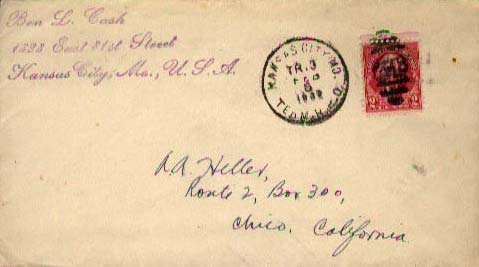 Ben L. Cash
1528 East 81st Street
Kansas City, Mo., U.S.A.
KANSAS CITY, MO.
TR. 3
TERM. R.P.O.
2
A.A. Heller,
Route 2, Box 300,
Chico, California